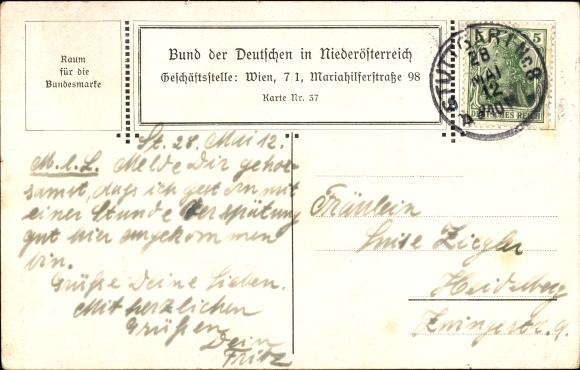 Raum
für die
Bundesmarke
Bund der Deutschen in Niederösterreich
Geschäftsstelle: Wien, 7/1, Mariahilferstraße 98
Karte Nr. 37
STUTTGART No 8
28
MAI
12
5
DEUTSCHES REICH
St. 28. Mai 12.
M. l. L. Melde Dir gehor-
samst, dass ich gestern mit
einer Stunde Verspätung
gut hier angekommen
bin.
Grüße Deine Lieben.
Mit herzlichen
Grüßen
Dein
Fritz
Fräulein
Luise Ziegler
Heidelberg
Zwingerstr. 9.